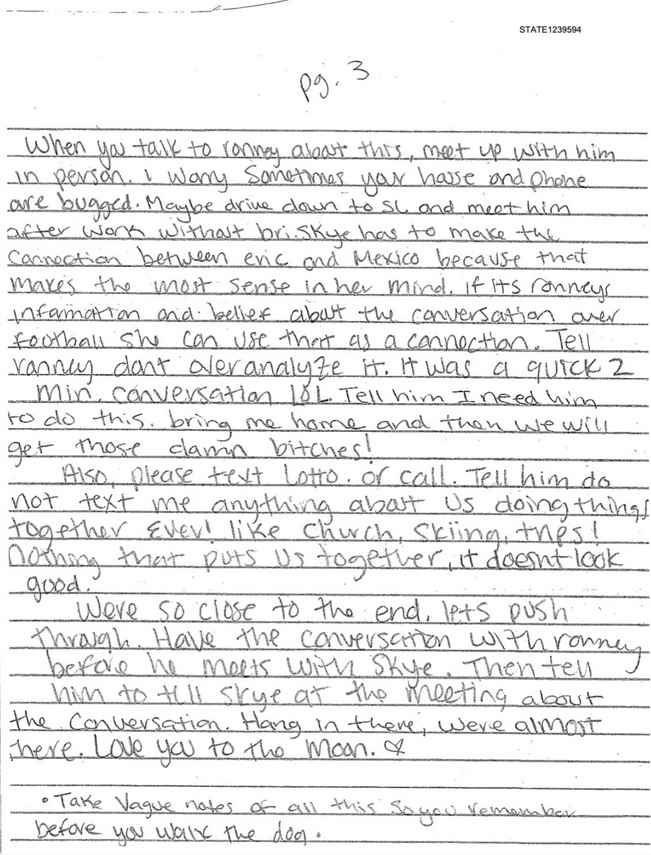 STATE1239594
pg. 3
When you talk to ronney about this, meet up with him
in person. i worry Sometimes your house and phone
are bugged. Maybe drive down to SL and meet him
after work without bri. Skye has to make the
Connection between eric and Mexico because that
makes the most sense in her mind. if its ronneys
information and belief about the conversation over
football she can use that as a connection. Tell
ronney dont over analyze it. it was a quick 2
min. conversation lol Tell him I need him
to do this. bring me home and then we will
get those damn bitches!
Also, please text Lotto. or call. Tell him do
not text me anything about us doing things
together Ever! like Church, Skiing, trips!
Nothing that puts us together, it doesnt look
good.
Were so close to the end. lets push
through. Have the conversation with ronney
before he meets with Skye. Then tell
him to tell skye at the meeting about
the conversation. Hang in there, were almost
there. Love you to the moon. ♡
• Take Vague notes of all this So you remember
before you walk the dog.